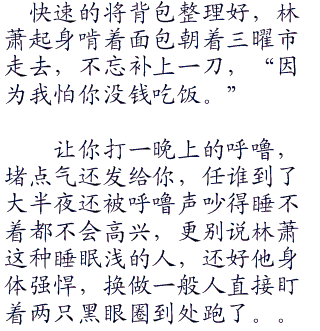 快速的将背包整理好，林
萧起身啃着面包朝着三曜市
走去，不忘补上一刀，“因
为我怕你没钱吃饭。”
让你打一晚上的呼噜，
堵点气还发给你，任谁到了
大半夜还被呼噜声吵得睡不
着都不会高兴，更别说林萧
这种睡眠浅的人，还好他身
体强悍，换做一般人直接盯
着两只黑眼圈到处跑了。。